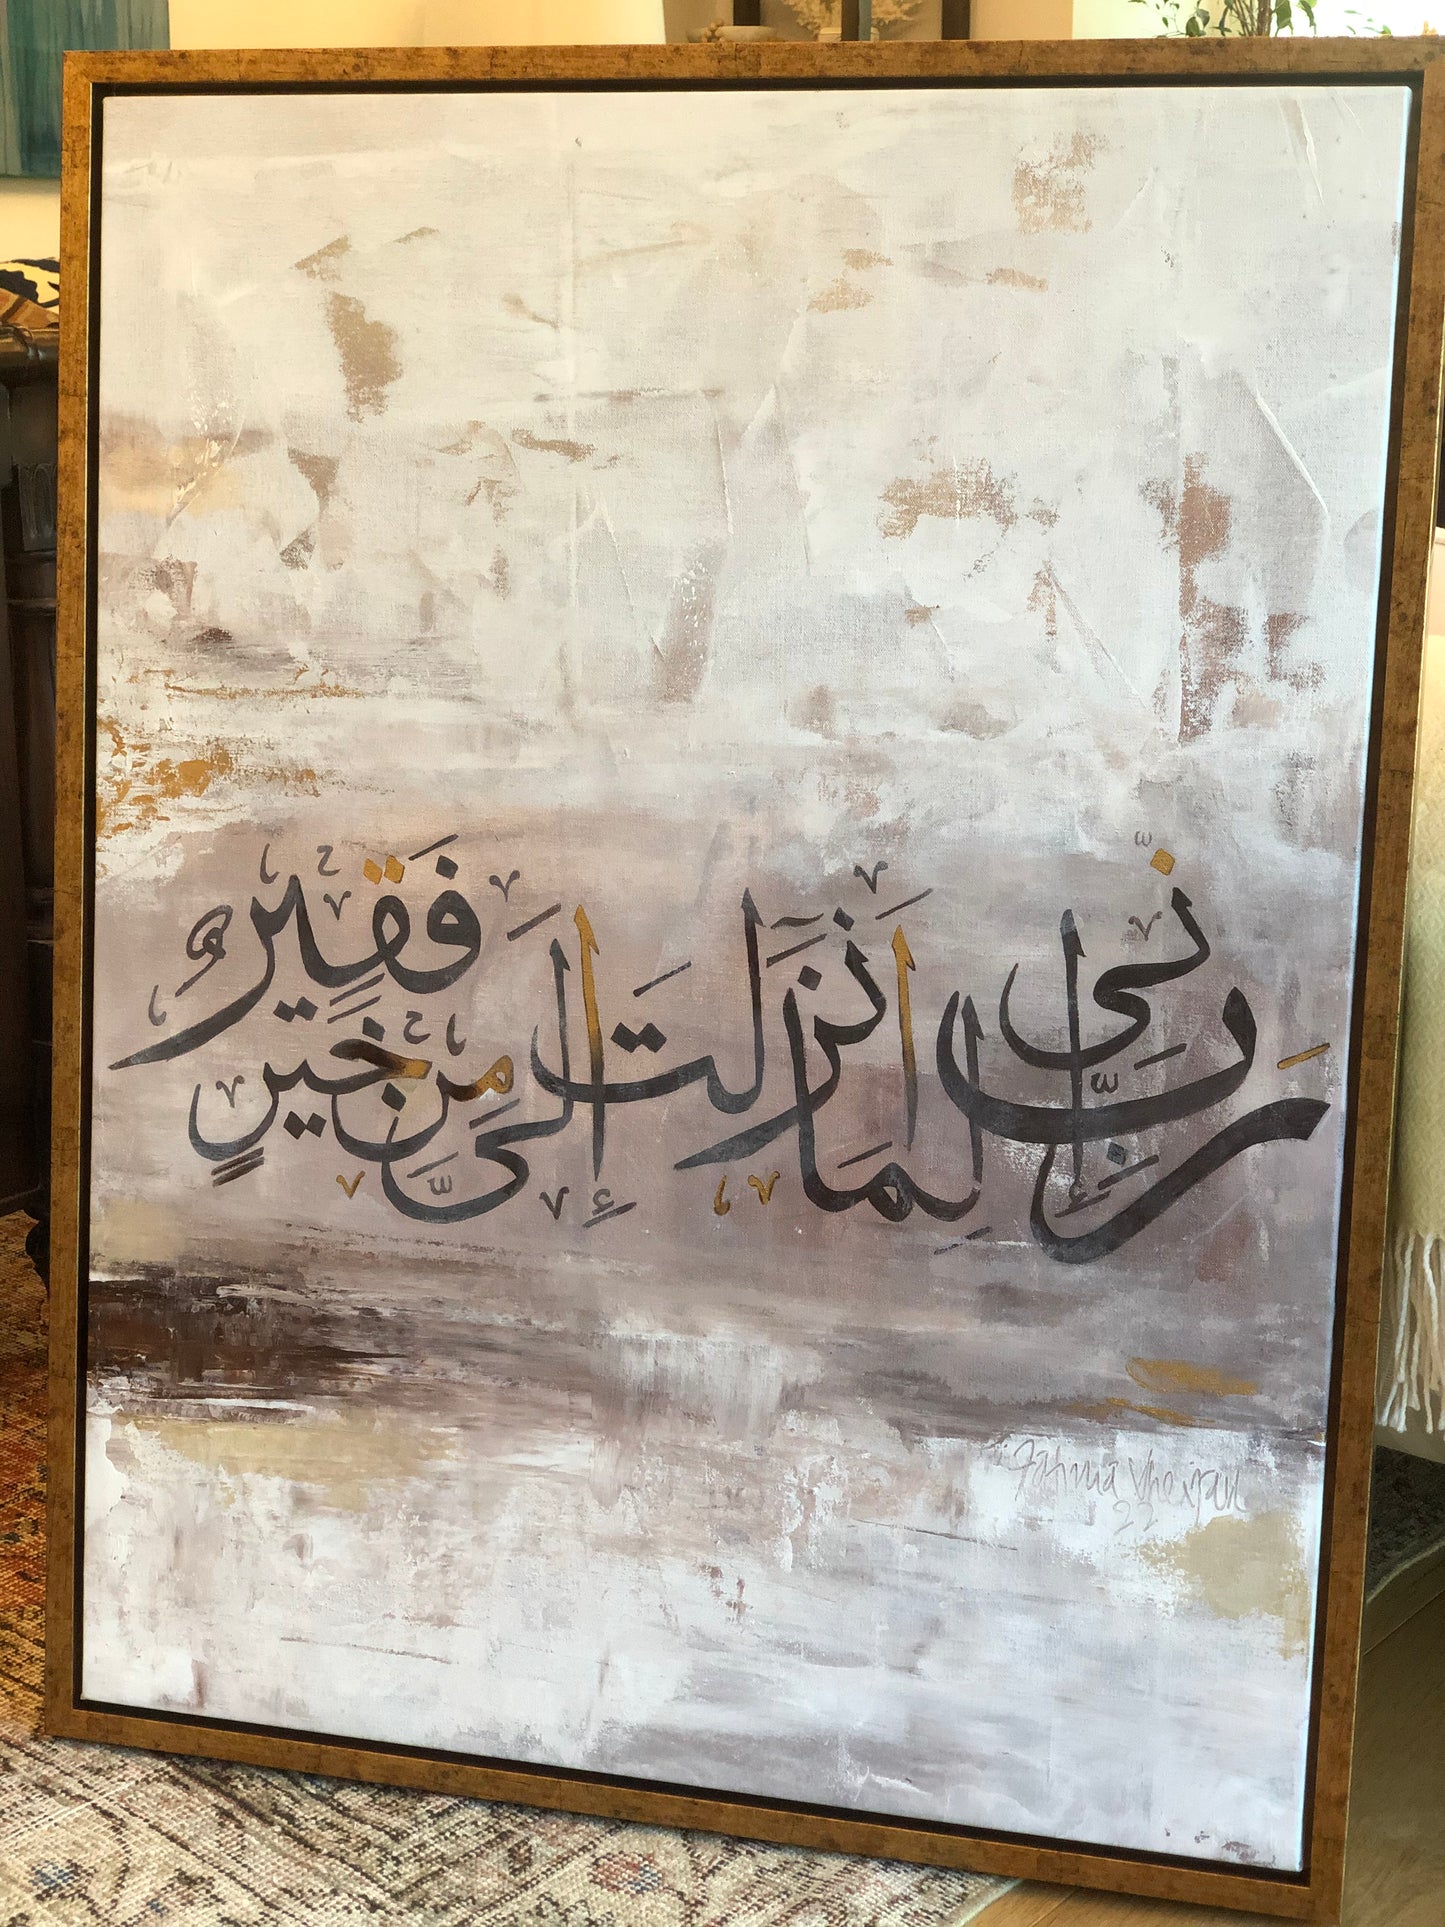 رَبِّ إِنِّي لِمَا أَنزَلْتَ إِلَيَّ مِنْ خَيْرٍ فَقِيرٌ
Fatima Kheirjan
22